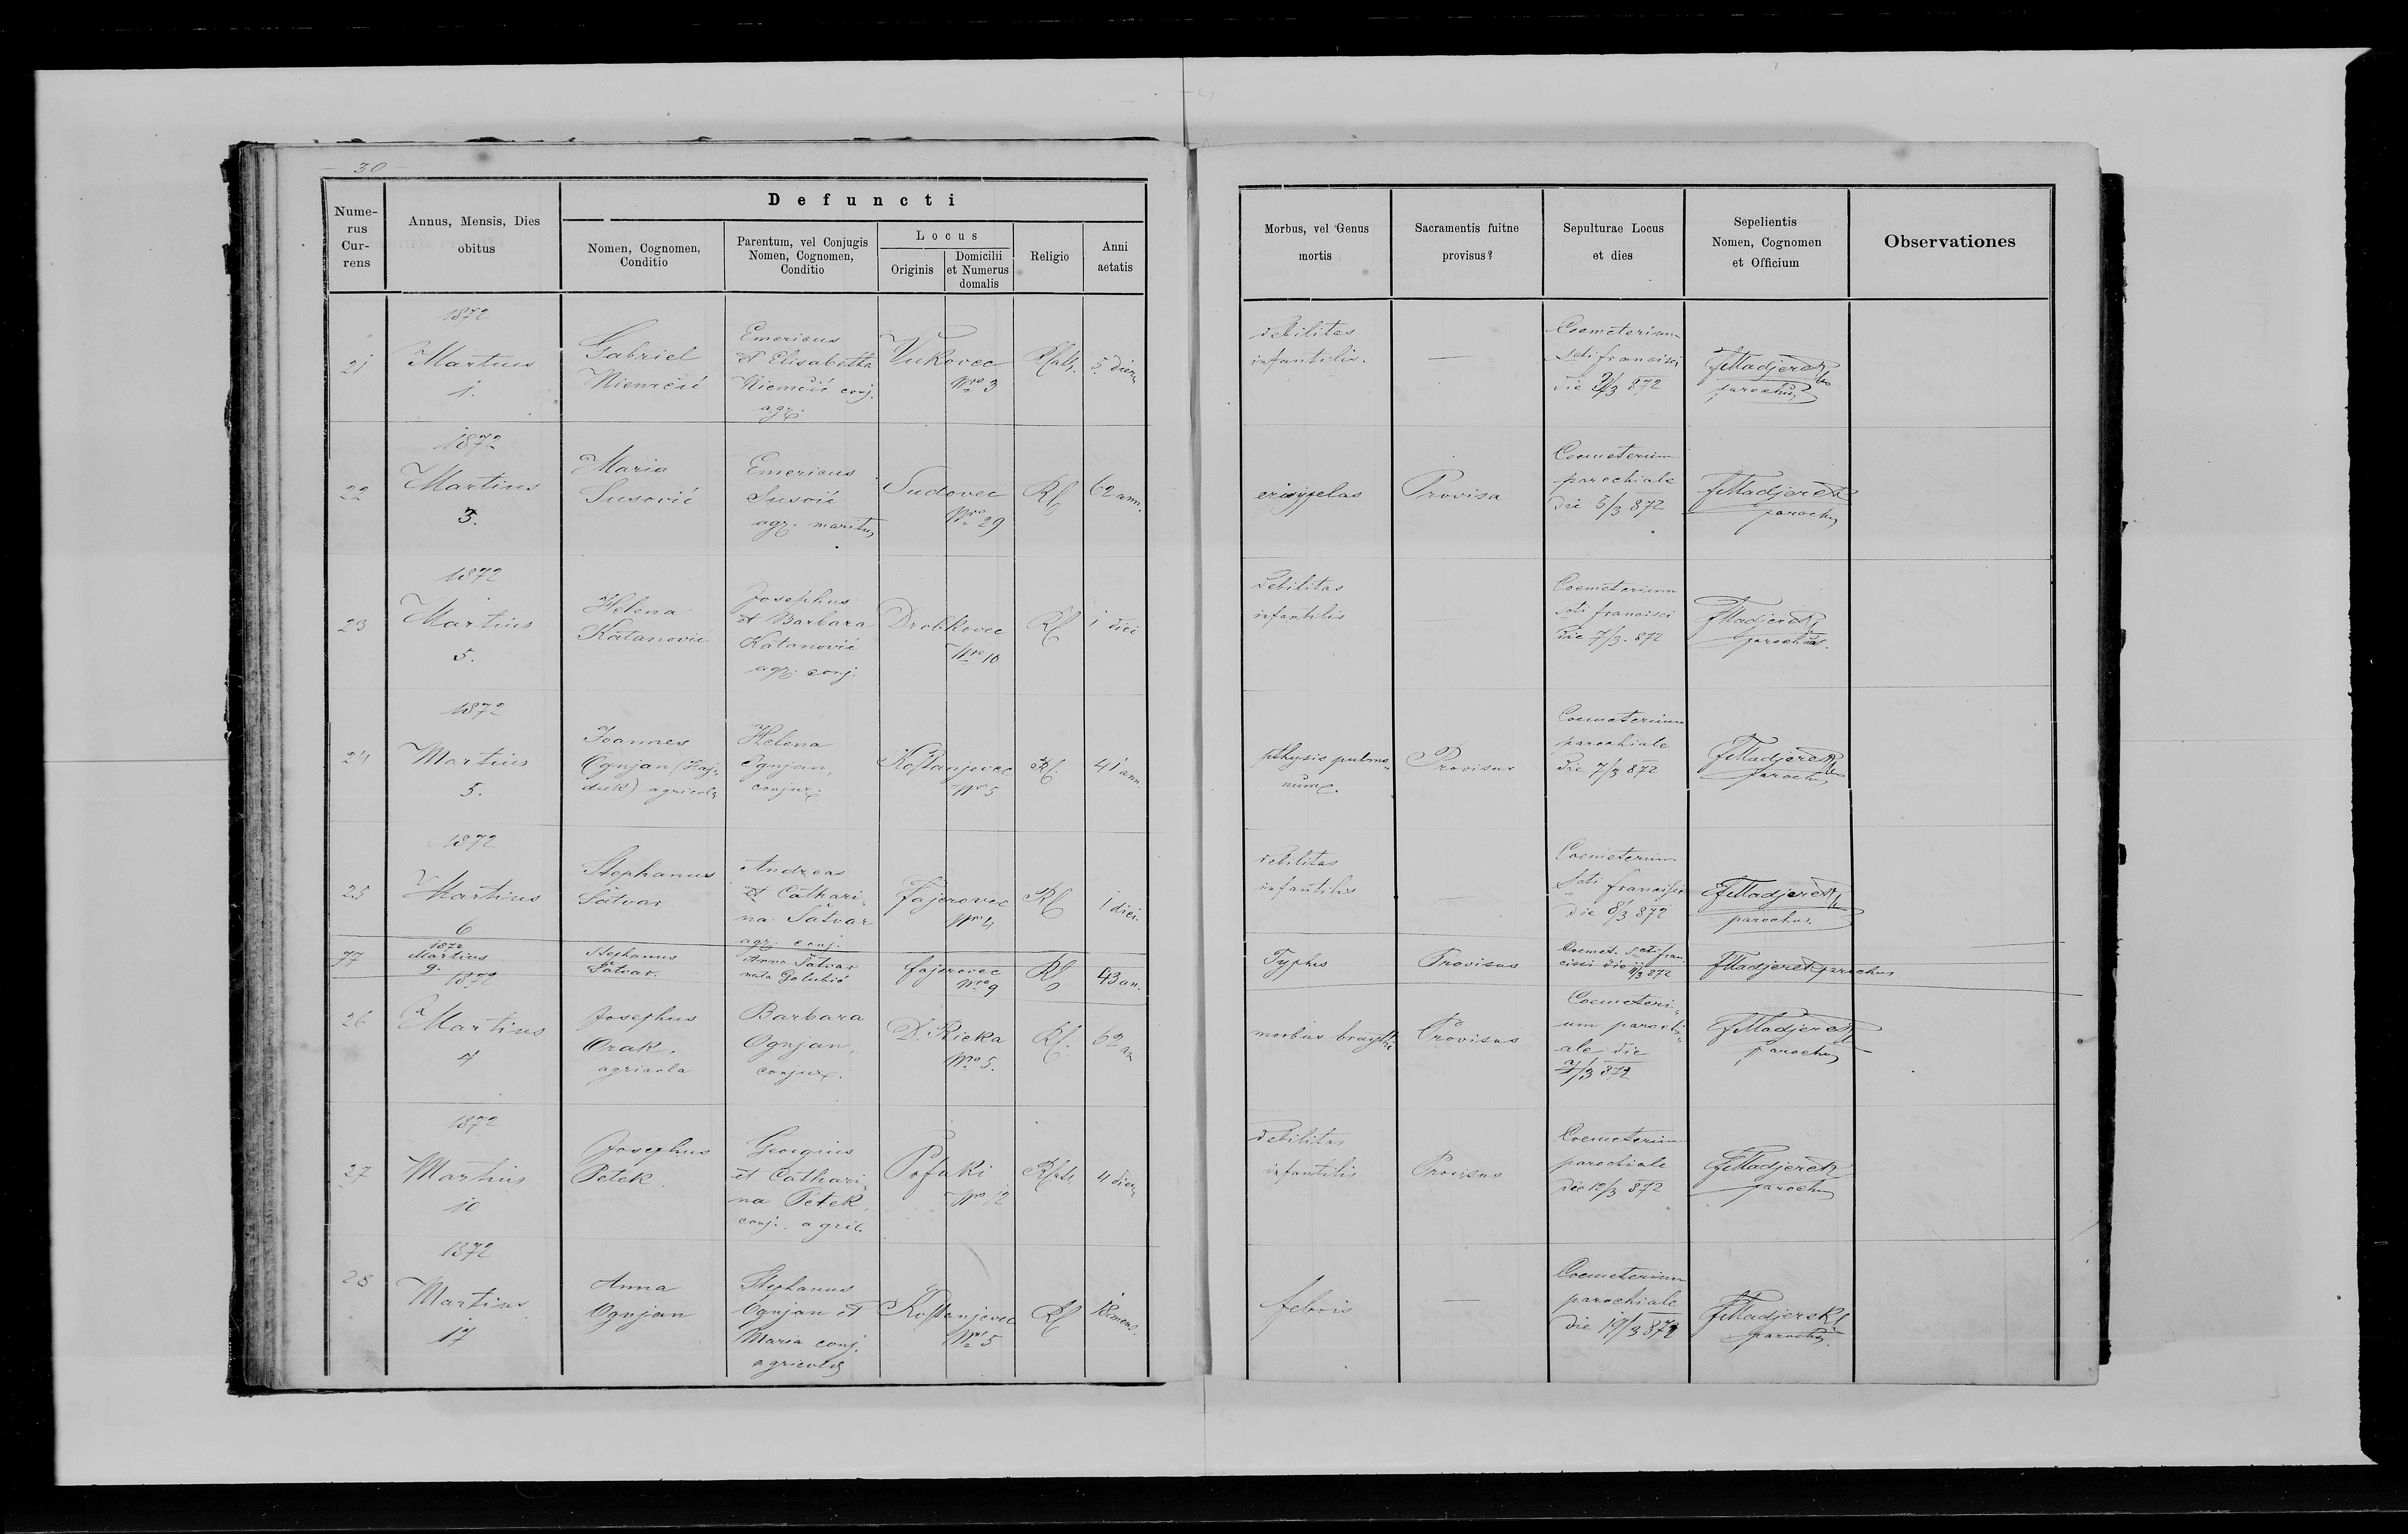 30
Defuncti
Nume-
rus
Cur-
rens
Annus, Mensis, Dies
obitus
Nomen, Cognomen,
Conditio
Parentum, vel Conjugis
Nomen, Cognomen,
Conditio
Locus
Originis
Domicilii
et Numerus
domalis
Religio
Anni
aetatis
Morbus, vel Genus
mortis
Sacramentis fuitne
provisus?
Sepulturae Locus
et dies
Sepelientis
Nomen, Cognomen
et Officium
Observationes
21
1872
Martius
1.
Gabriel
Niemčić
Emericus
et Elisabetha
Niemčić conj.
agr.
Vukovec
Nro 3
5 dierum
debilitas
infantilis.
—
Coemeterium
Scti francisci
die 872
FMadjerek
parochus
22
1872
Martius
3.
Maria
Susović
Emericus
Susović
agr. maritus
Sudovec
Nro 29
RC
62 ann.
erisypelas
Provisa
Coemeterium
parochiale
die 5/3 872
FMadjerek
parochus
23
1872
Martius
5.
Helena
Katanović
Josephus
et Barbara
Katanović
agr. conj.
Drobkovec
Nro 10
RC
1 diei
Debilitas
infantilis
—
Coemeterium
scti francisci
Die 7/3. 872
FMadjerek
parochus.
24
1872
Martius
5.
Joannes
Ognjan (Haj-
duk) agricola
Helena
Ognjan,
conjux.
Kostanjevec
Nro 5
RC.
41 ann.
pthysis pulmo-
num
Provisus
Coemeterium
parochiale
Die 7/3 872
FMadjerek
parochus
25
1872
Martius
6
Stephanus
Šatvar
Andreas
et Cathari-
na Šatvar
agr. conj.
Fajerovec
Nro 4
RC
1 diei.
debilitas
infantilis
—
Coemeterium
Scti francisci
die 8/3 872
FMadjerek
parochus.
77
1872
Martius
9.
Stephanus
Šatvar.
Anna Šatvar
nata Golubić
fajerovec
Nro 9
RC
43 an.
Typhus
Provisus
Coemet. scti fran-
cisci die 11/3 872
FMadjerek parochus
26
1872
Martius
7
Josephus
Orak.
agricola
Barbara
Ognjan,
conjux.
D. Rieka
Nro 5.
RC.
62 an
morbus
Provisus
Coemeteri-
um parochi-
ale die
872
FMadjerek
parochus
27
1872
Martius
10
Josephus
Petek.
Georgius
et Cathari-
na Petek,
conj. agric.
Pofuki
Nro 12
4 dierum
Debilitas
infantilis
Provisus
Coemeterium
parochiale
die 12/3 872
FMadjerek
parochus
28
1872
Martius
17
Anna
Ognjan
Stephanus
Ognjan et
Maria conj.
agricolae
Kostanjevec
Nro 5
RC
18 mens.
febris
—
Coemeterium
parochiale
die 19/3 872
FMadjerek
parochus.